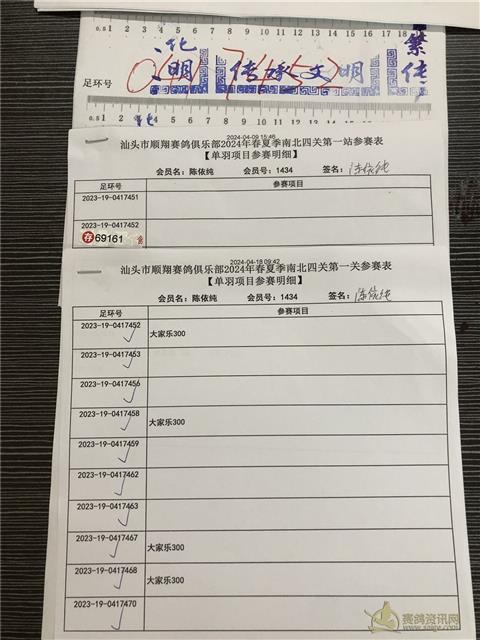 0.5 1 2 3 4 5 6 7 8 9 10 11 12 13 14 15 16 17 18
繁传
足环号
明 传承文明
0.5 1 2 3 4 5 6 7 8 9 10 11 12 13 14 15 16 17 18
2024-04-09 15:46
汕头市顺翔赛鸽俱乐部2024年春夏季南北四关第一站参赛表
【单羽项目参赛明细】
会员名：陈依纯 会员号：1434 签名：陈依纯
足环号 参赛项目
2023-19-0417451
2023-19-0417452
春69161
2024-04-18 09:42
汕头市顺翔赛鸽俱乐部2024年春夏季南北四关第一关参赛表
【单羽项目参赛明细】
会员名：陈依纯 会员号：1434 签名：陈依纯
足环号 参赛项目
2023-19-0417452 大家乐300
2023-19-0417453
2023-19-0417456
2023-19-0417458 大家乐300
2023-19-0417459
2023-19-0417462
2023-19-0417463
2023-19-0417467 大家乐300
2023-19-0417468 大家乐300
2023-19-0417470
赛鸽资讯网